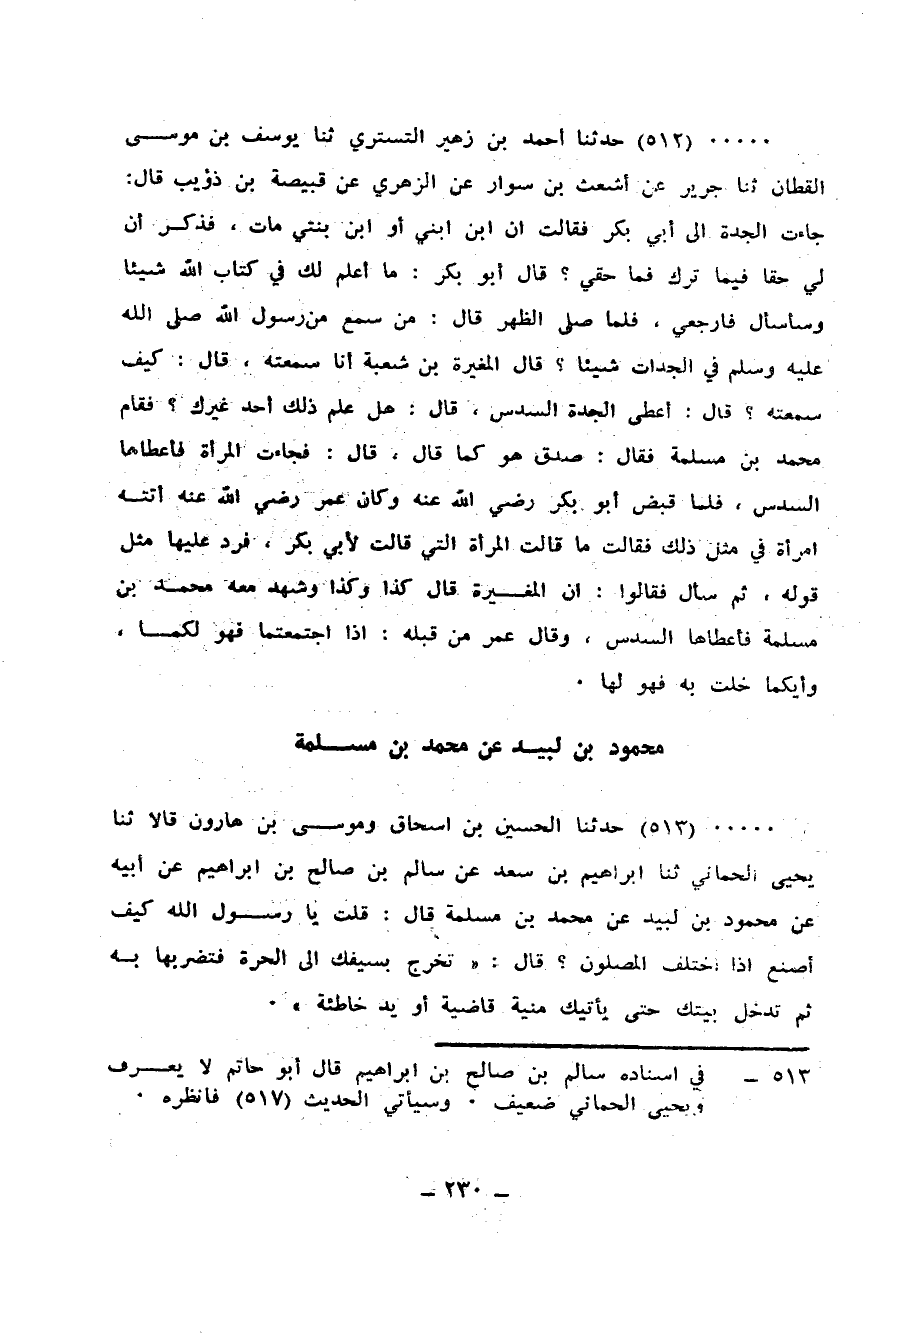 ٠٠٠٠٠ (٥١٢) حدثنا أحمد بن زهير التستري ثنا يوسف بن موســى
القطان ثنا جرير عن أشعث بن سوار عن الزهري عن قبيصة بن ذؤيب قال:
جاءت الجدة الى أبي بكر فقالت ان ابن ابني أو ابن بنتي مات ، فذكــر أن
لي حقا فيما ترك فما حقي ؟ قال أبو بكر : ما أعلم لك في كتاب الله شيئا
وسأسأل فارجعي ، فلما صلى الظهر قال : من سمع من رسول الله صلى الله
عليه وسلم في الجدات شيئا ؟ قال المغيرة بن شعبة أنا سمعته ، قال : كيف
سمعته ؟ قال : أعطى الجدة السدس ، قال : هل علم ذلك أحد غيرك ؟ فقام
محمد بن مسلمة فقال : صدق هو كما قال ، قال : فجاءت المرأة فأعطاها
السدس ، فلما قبض أبو بكر رضي الله عنه وكان عمر رضي الله عنه أتتــه
امرأة في مثل ذلك فقالت ما قالت المرأة التي قالت لأبي بكر ، فرد عليها مثل
قوله ، ثم سأل فقالوا : ان المغــيرة قال كذا وكذا وشهد معه محمــد بن
مسلمة فأعطاها السدس ، وقال عمر من قبله : اذا اجتمعتما فهو لكمــا ،
وأيكما خلت به فهو لها ٠
محمود بن لبيــد عن محمد بن مســلمة
٠٠٠٠٠ (٥١٣) حدثنا الحسين بن اسحاق وموســى بن هارون قالا ثنا
يحيى الحماني ثنا ابراهيم بن سعد عن سالم بن صالح بن ابراهيم عن أبيه
عن محمود بن لبيد عن محمد بن مسلمة قال : قلت يا رســول الله كيف
أصنع اذا اختلف المصلون ؟ قال : « تخرج بسيفك الى الحرة فتضربها بــه
ثم تدخل بيتك حتى يأتيك منية قاضية أو يد خاطئة » ٠
٥١٣ ـ في اسناده سالم بن صالح بن ابراهيم قال أبو حاتم لا يعــرف
ويحيى الحماني ضعيف ٠ وسيأتي الحديث (٥١٧) فانظره ٠
ـ ٢٣٠ ـ